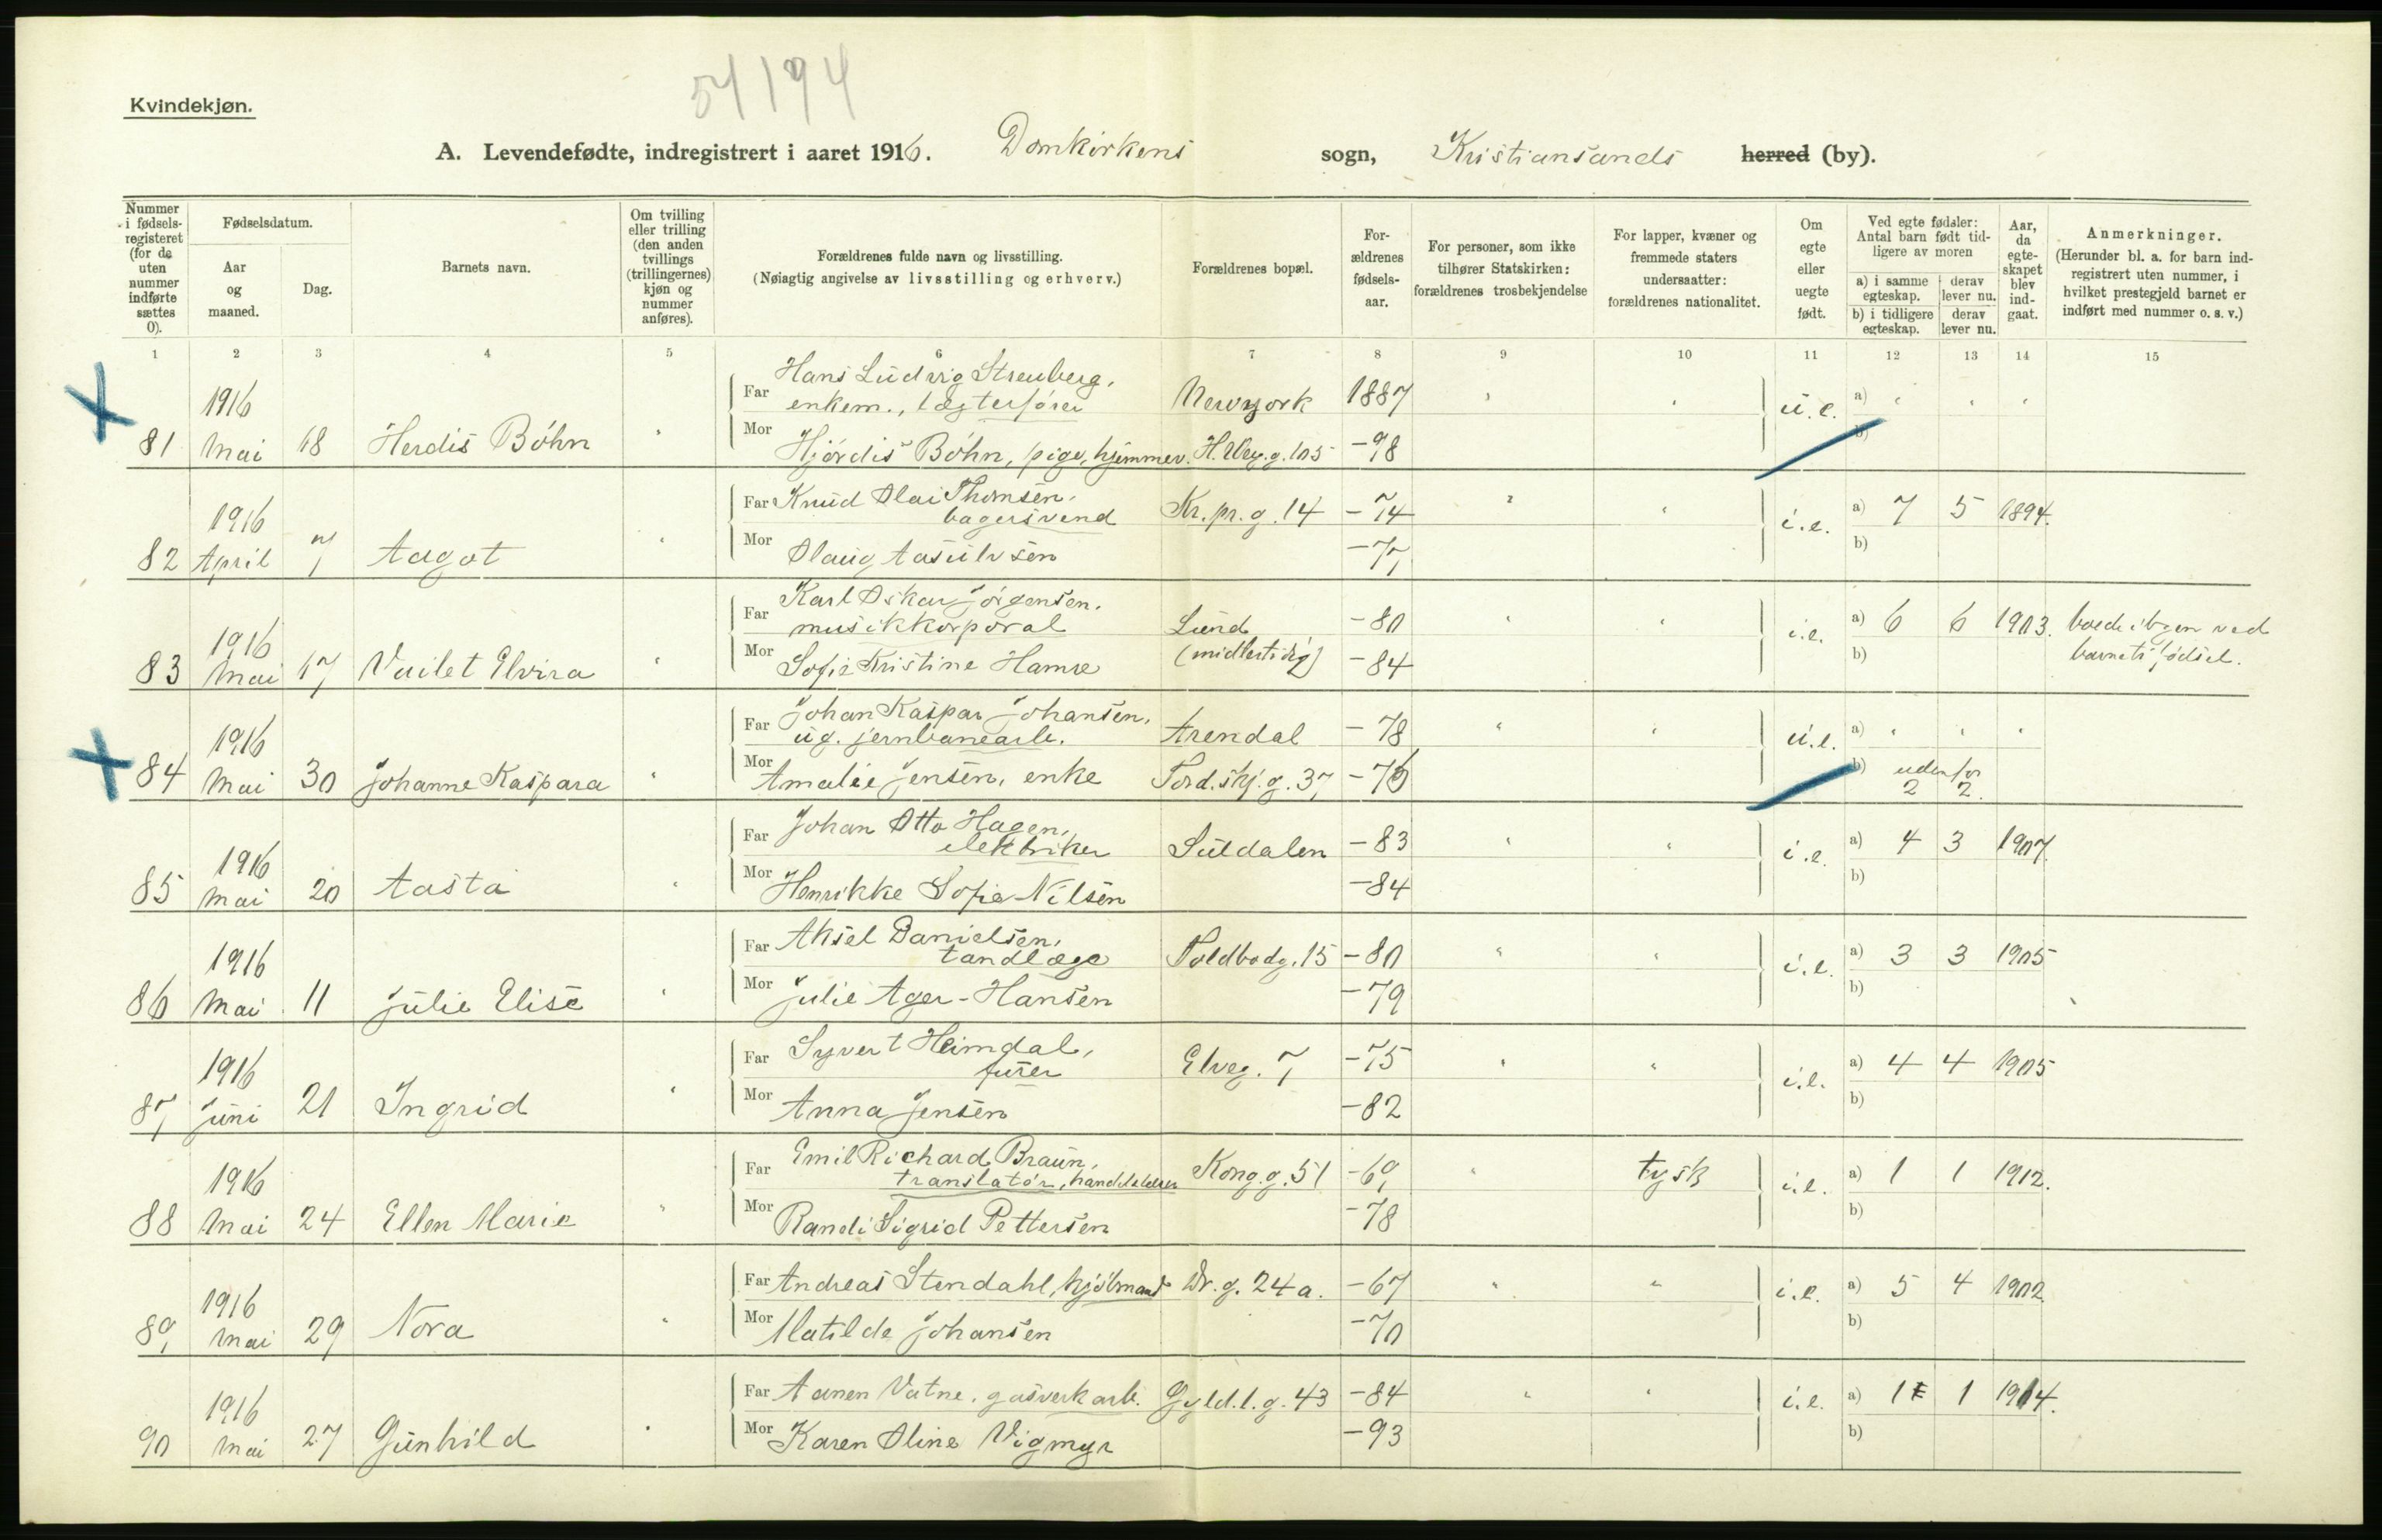 54194
Kvindekjøn.
A. Levendefødte, indregistrert i aaret 1916. Domkirkens sogn, Kristiansands herred (by).
Nummer i fødselsregisteret (for de uten nummer indførte sættes 0).
Fødselsdatum.
Aar og maaned.
Dag.
Barnets navn.
Om tvilling eller trilling (den anden tvillings (trillingernes) kjøn og nummer anføres).
Forældrenes fulde navn og livsstilling.
(Nøiagtig angivelse av livsstilling og erhverv.)
Forældrenes bopæl.
Forældrenes fødselsaar.
For personer, som ikke tilhører Statskirken: forældrenes trosbekjendelse
For lapper, kvæner og fremmede staters undersaatter: forældrenes nationalitet.
Om egte eller uegte født.
Ved egte fødsler: Antal barn født tidligere av moren
a) i samme egteskap. derav lever nu.
b) i tidligere egteskap. derav lever nu.
Aar, da egteskapet blev indgaat.
Anmerkninger.
(Herunder bl. a. for barn indregistrert uten nummer, i hvilket prestegjeld barnet er indført med nummer o. s. v.)
1 2 3 4 5 6 7 8 9 10 11 12 13 14 15
Far Hans Ludvig Streuberg,
1916 enkem., lægterfører Newyork 1887 " " u.e. a) " " "
81 Mai 18 Herdis Böhn " Mor Hjördis Böhn, pige, hjemmev. H. Weg. g. 105 -98 b)
Far Knud Olai Thomsen,
1916 bagersvend Kr. pr. g. 14 -74 " " i.e. a) 7 5 1894.
82 April 7 Aagot " Mor Olaug Aasulvsen -77 b)
Far Karl Oskar Jörgensen,
1916 musikkorporal Lund -80 " " i.e. a) 6 6 1903. boede i byen ved
83 Mai 17 Vailet Elvira " Mor Sofie Kristine Hamre (midlertidig) -84 b) barnets fødsel.
Far Johan Kaspar Johansen,
1916 ug. jernbanearb. Arendal -78 " " u.e. a) " " "
84 Mai 30 Johanne Kaspara " Mor Amalie Jensen, enke Tord.skj. g. 37 -76 b) udenfor
2 2.
Far Johan Otto Hagen,
1916 elektriker Suldalen -83 " " i.e. a) 4 3 1907
85 Mai 20 Aasta " Mor Henrikke Sofie Nilsen -84 b)
Far Aksel Danielsen,
1916 tandlæge Toldbodg. 15 -80 " " i.e. a) 3 3 1905
86 Mai 11 Julie Elise " Mor Julie Ager-Hansen -79 b)
Far Syvert Heimdal,
1916 furer Elveg. 7 -75 " " i.e. a) 4 4 1905
87 Juni 21 Ingrid " Mor Anna Jensen -82 b)
Far Emil Richard Braun,
1916 translatör, Kong. g. 51 -69 " tysk i.e. a) 1 1 1912.
88 Mai 24 Ellen Marie " Mor Randi Sigrid Pettersen -78 b)
Far Andreas Stendahl, kjölmand Dr. g. 24 a. -67 " " i.e. a) 5 4 1902.
1916
89 Mai 29 Nora " Mor Matilde Johansen -70 b)
Far Aanen Vatne, gasverkarb. Gyld. l. g. 43 -84 " " i.e. a) 1 1 1914.
1916
90 Mai 27 Gunhild " Mor Karen Oline Vigmyr -93 b)